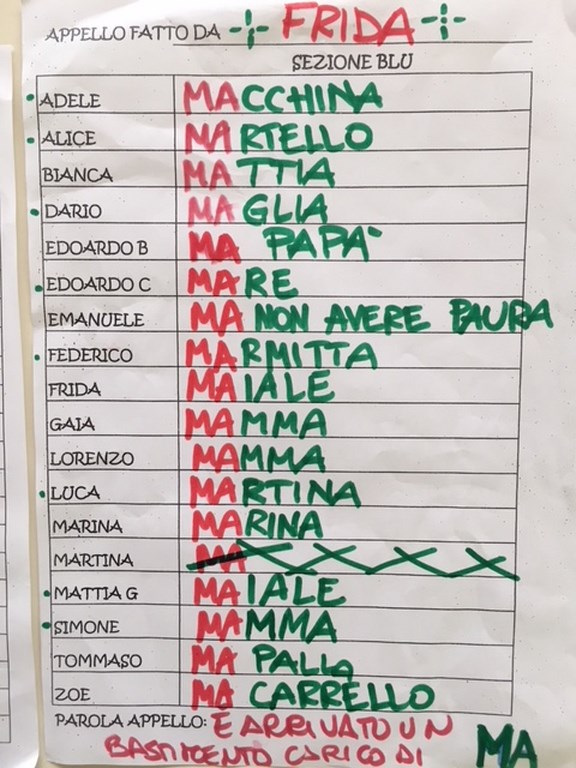 APPELLO FATTO DA FRIDA
SEZIONE BLU
ADELE MACCHINA
ALICE MARTELLO
BIANCA MATTIA
DARIO MAGLIA
EDOARDO B MA PAPA`
EDOARDO C MARE
EMANUELE MA NON AVERE PAURA
FEDERICO MARMITTA
FRIDA MAIALE
GAIA MAMMA
LORENZO MAMMA
LUCA MARTINA
MARINA MARINA
MARTINA MA
MATTIA G MAIALE
SIMONE MAMMA
TOMMASO MA PALLA
ZOE MA CARRELLO
PAROLA APPELLO: È ARRIVATO UN
BASTIMENTO CARICO DI MA